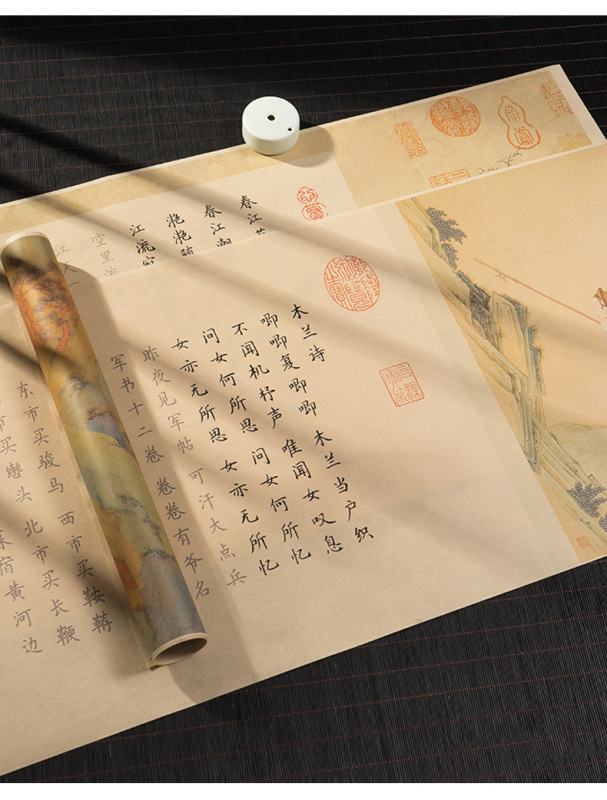 春江
春江潮
滟滟随
江流宛
空里流
江天一
木兰诗
唧唧复唧唧 木兰当户织
不闻机杼声 唯闻女叹息
问女何所思 问女何所忆
女亦无所思 女亦无所忆
昨夜见军帖 可汗大点兵
军书十二卷 卷卷有爷名
东市买骏马 西市买鞍鞯
市买辔头 北市买长鞭
宿黄河边